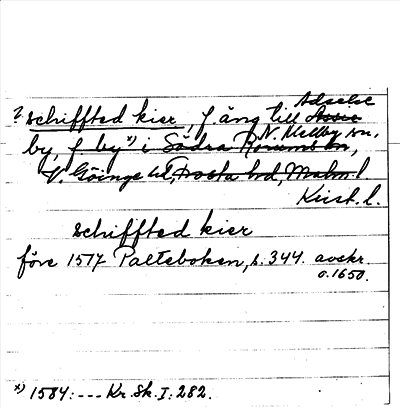 Adseke
? schiffted kier, f. äng till Assie
N. Mellby sn,
by, f by x) i Södra Rörums sn,
V. Göinge hd, Frosta hd, Malm. l.
Krist. l.
schiffted kier
före 1517 Palteboken, s. 344. avskr.
o. 1650.
x) 1584: --- Kr. Sk. I: 282.